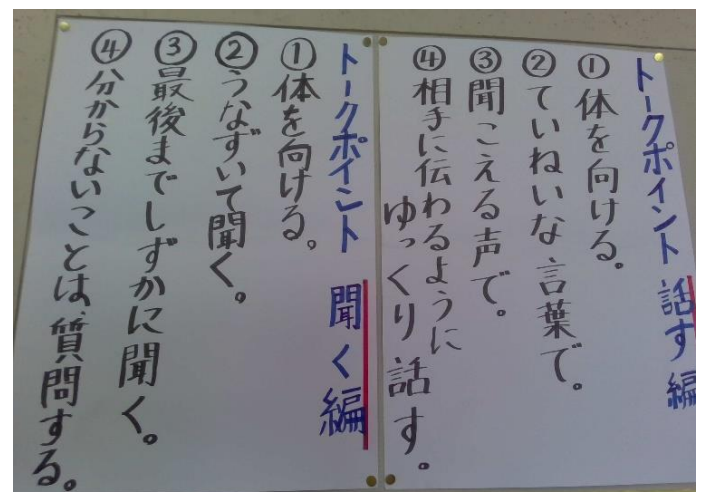 トークポイント 話す編
①体を向ける。
②ていねいな言葉で。
③聞こえる声で。
④相手に伝わるように
ゆっくり話す。
トークポイント 聞く編
①体を向ける。
②うなずいて聞く。
③最後までしずかに聞く。
④分からないことは、質問する。